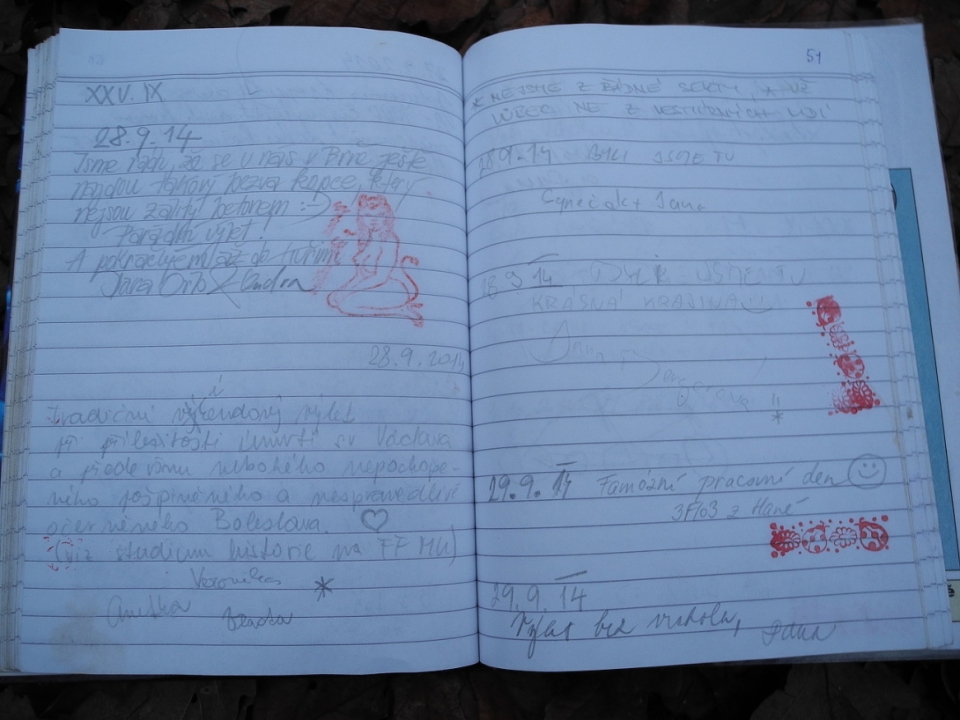 XXV. IX
28.9.14
Jsme rádi, že se u nás v Brně ještě
najdou takový bezva kopce, který
nejsou zalitý betonem :-)
Parádní výlet!
A pokračujem až do
Jana Ondra
28.9.2014
Tradiční víkendový výlet
při příležitosti úmrtí sv Václava
a především nebohého nepochope-
ného pošpiněného a nespravedlivě
očerněného Boleslava. ♡
(viz studium historie na FF MU)
Veronika *
Anežka
51
* NEJSME Z ŽÁDNÉ SEKTY, * UŽ
VŮBEC NE Z
28.9.14 BYLI JSME TU
Jana
28.9.14 JSME TU
KRÁSNÁ KRAJINA
29.9.14 Famózní pracovní den
z Hané
29.9.14
Výlet bez vrcholu,